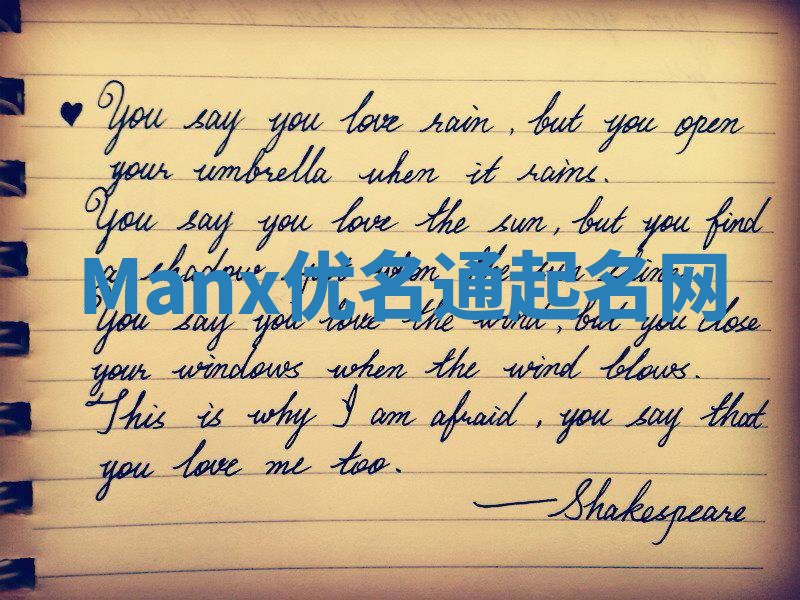 ♥ You say you love rain, but you open
your umbrella when it rains.
You say you love the sun, but you find
a shadow spot when the sun shines.
Manx优名通起名网
You say you love the wind, but you close
your windows when the wind blows.
This is why I am afraid, you say that
you love me too.
— Shakespeare